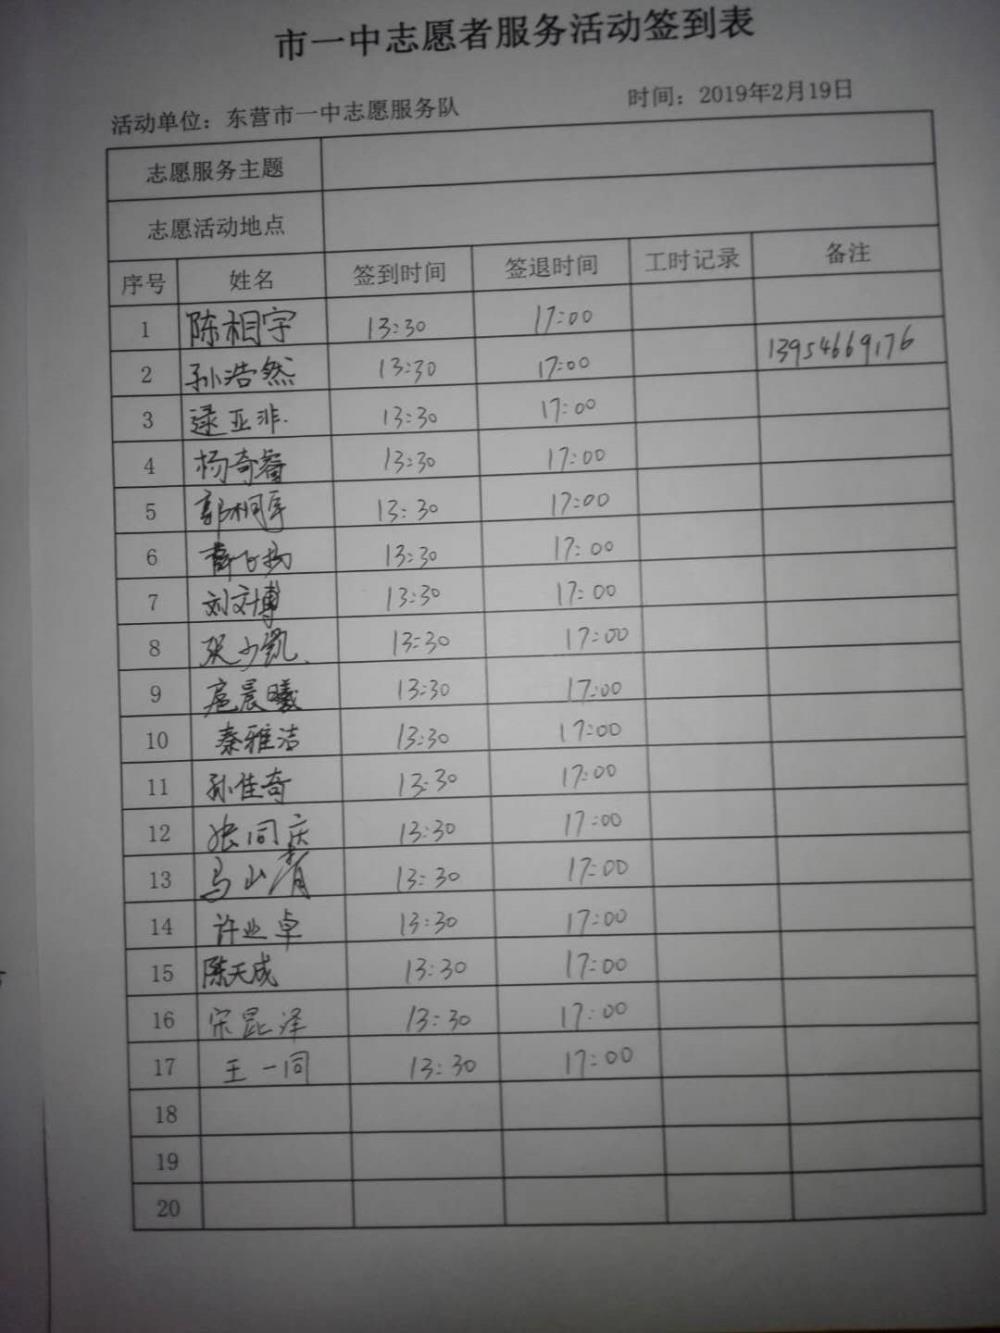 市一中志愿者服务活动签到表
活动单位：东营市一中志愿服务队 时间：2019年2月19日
志愿服务主题
志愿活动地点
序号 姓名 签到时间 签退时间 工时记录 备注
1 陈相宇 13:30 17:00
2 孙浩然 13:30 17:00 13954669176
3 逯亚非 13:30 17:00
4 杨奇睿 13:30 17:00
5 郭桐军 13:30 17:00
6 13:30 17:00
7 刘文博 13:30 17:00
8 张少凯 13:30 17:00
9 扈晨曦 13:30 17:00
10 秦雅洁 13:30 17:00
11 孙佳奇 13:30 17:00
12 张同庆 13:30 17:00
13 马山青 13:30 17:00
14 许业卓 13:30 17:00
15 陈天成 13:30 17:00
16 宋昆泽 13:30 17:00
17 王一同 13:30 17:00
18
19
20